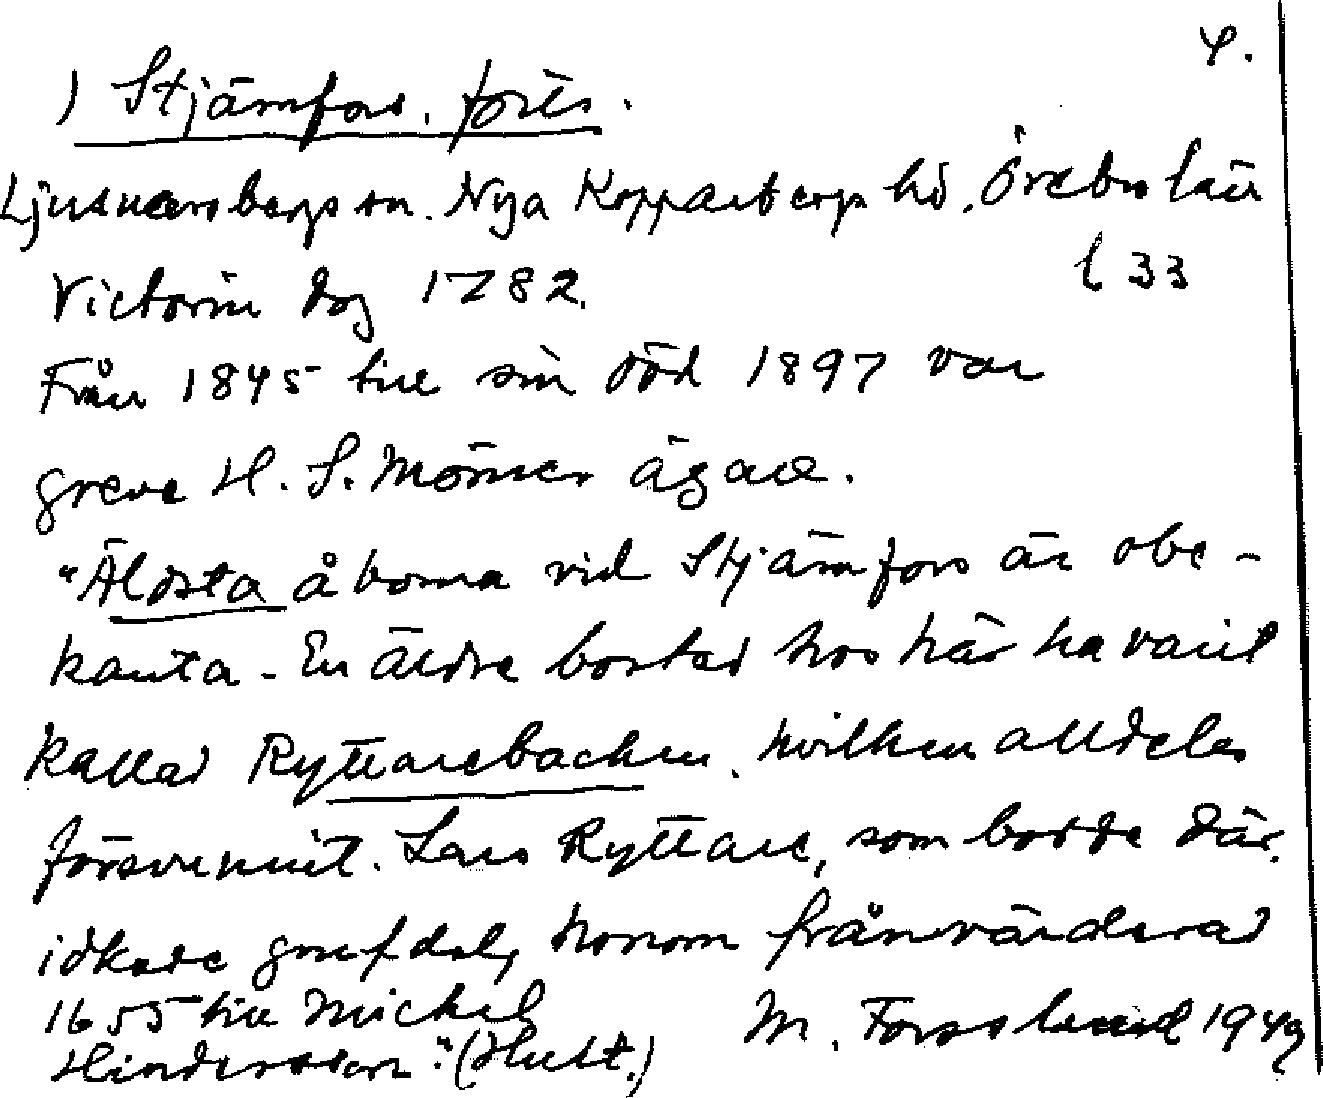 4.
1) Stjärnfors. forts.
Ljusnarsbergs sn. Nya Kopparbergs hd. Örebro län
Victorin dog 1782.
l 33
Från 1845 till sin död 1897 var
greve H. S. Mörner ägare.
"Äldsta åborna vid Stjärnfors är obe-
kanta. En äldre bostad hos här ha varit
kallad Ryttarebacken. hvilken alldeles
försvunnit. Lars Ryttare, som bodde där.
idkade grufdel, honom frånvärderad
1655 till Mickel
Hindersson". (Hult.)
M. Forsslund 1949